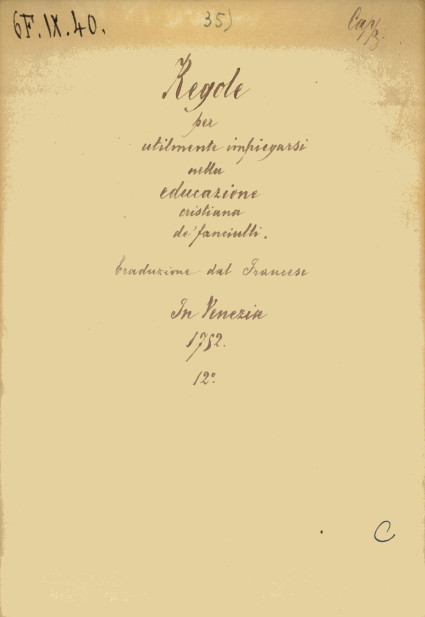 6F.IX.40.
35)
Regole
per
utilmente impiegarsi
nella
educazione
cristiana
de' fanciulli.
traduzione dal Francese
In Venezia
1752.
12º
C